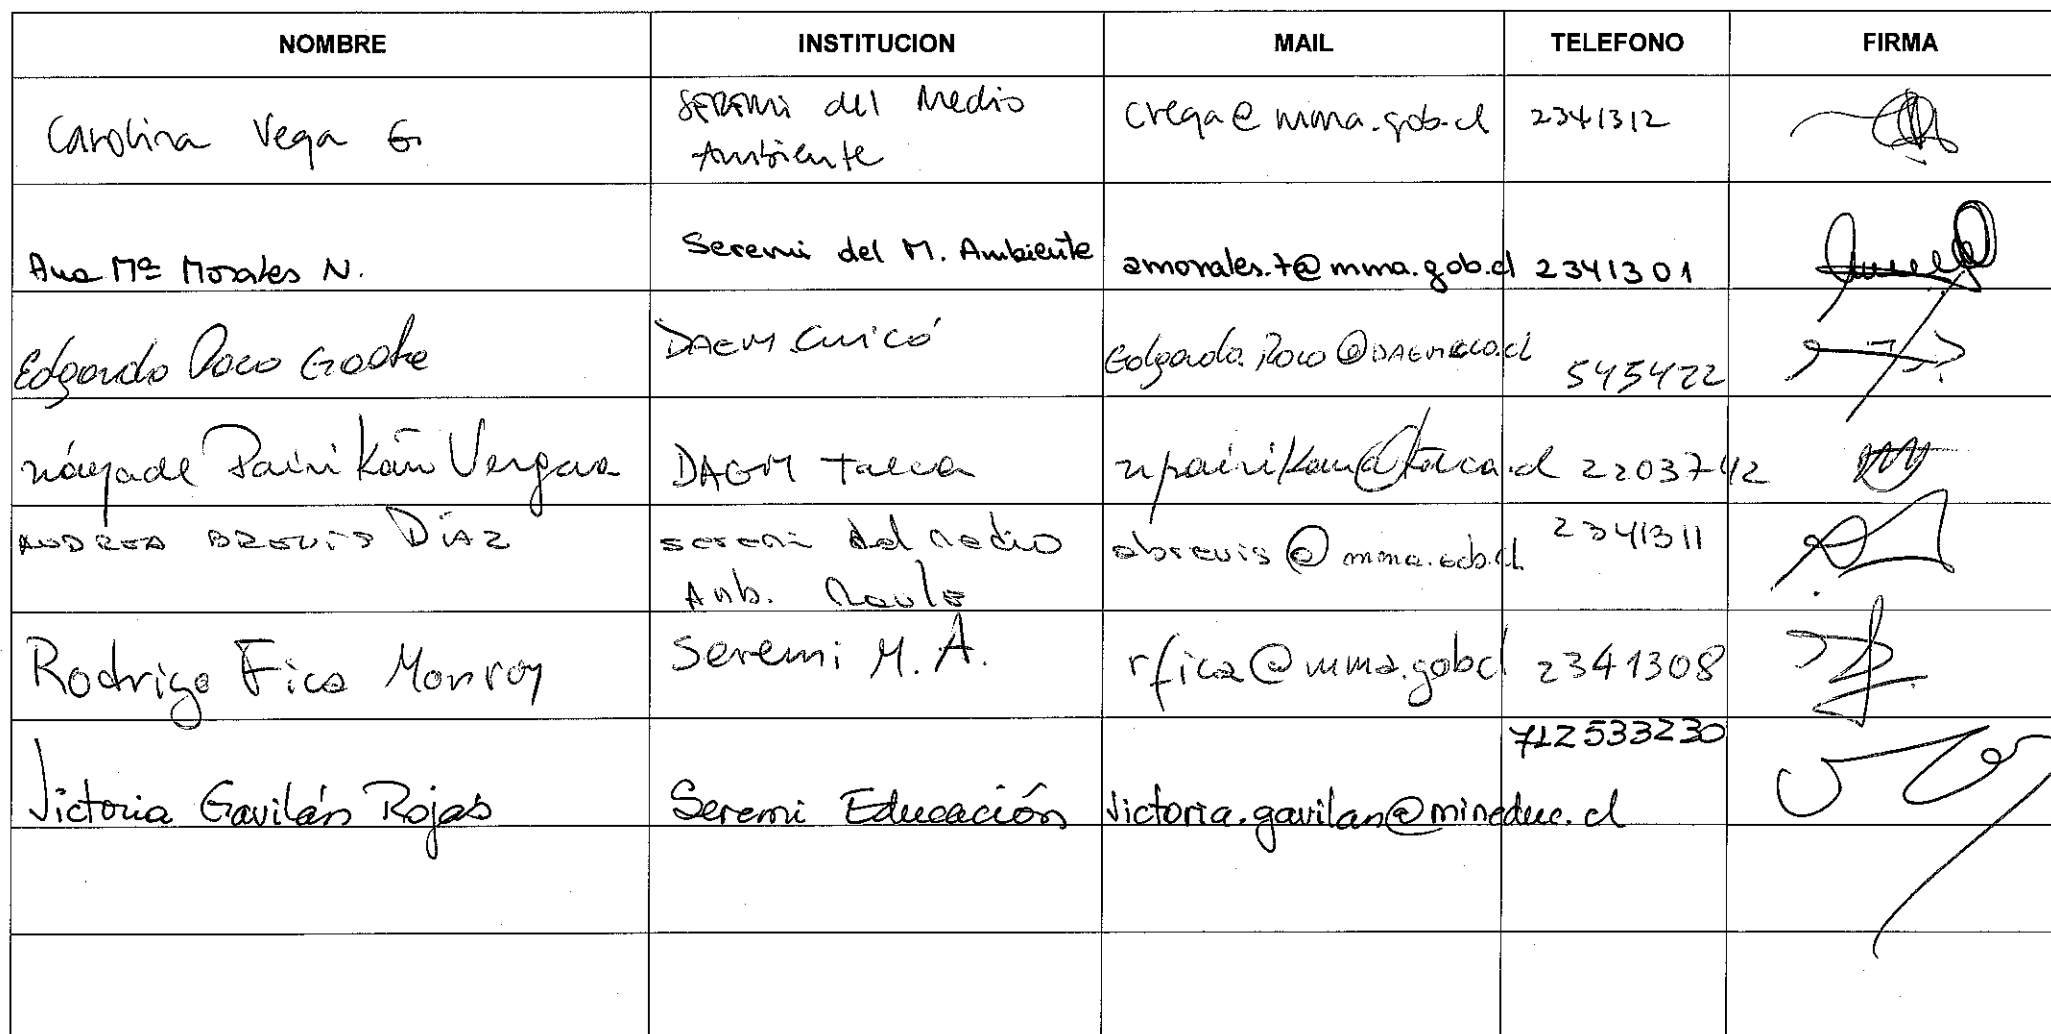 NOMBRE INSTITUCION MAIL TELEFONO FIRMA
Carolina Vega G. SEREMI del Medio Ambiente cvega@mma.gob.cl 2341312
Ana Mª Morales N. Seremi del M. Ambiente amorales.7@mma.gob.cl 2341301
Edgardo Poco DAEM Curicó 545422
náyade Painikán Vergara DAEM Talca npainikan@talca.cl 2203742
ANDREA BREVIS DÍAZ seremi del medio Amb. Maule abrevis@mma.gob.cl 2341311
Rodrigo Fica Monroy Seremi M. A. rfica@mma.gob.cl 2341308
Victoria Gavilán Rojas Seremi Educación victoria.gavilan@mineduc.cl 712533230